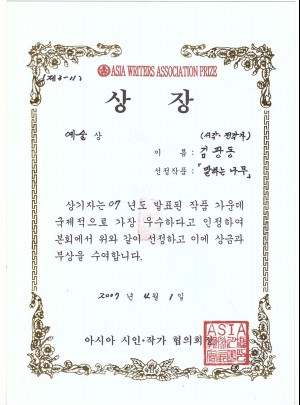 제3-11호
ASIA WRITERS ASSOCIATION PRIZE
상 장
예술 상
(서각·전각가)
이 름 : 김광동
선정작품 : 「말하는 나무」
상기자는 07 년도 발표된 작품 가운데
국제적으로 가장 우수하다고 인정하여
본회에서 위와 같이 선정하고 이에 상금과
부상을 수여합니다.
2007 년 4 월 1 일
아시아 시인·작가 협의회
ASIA